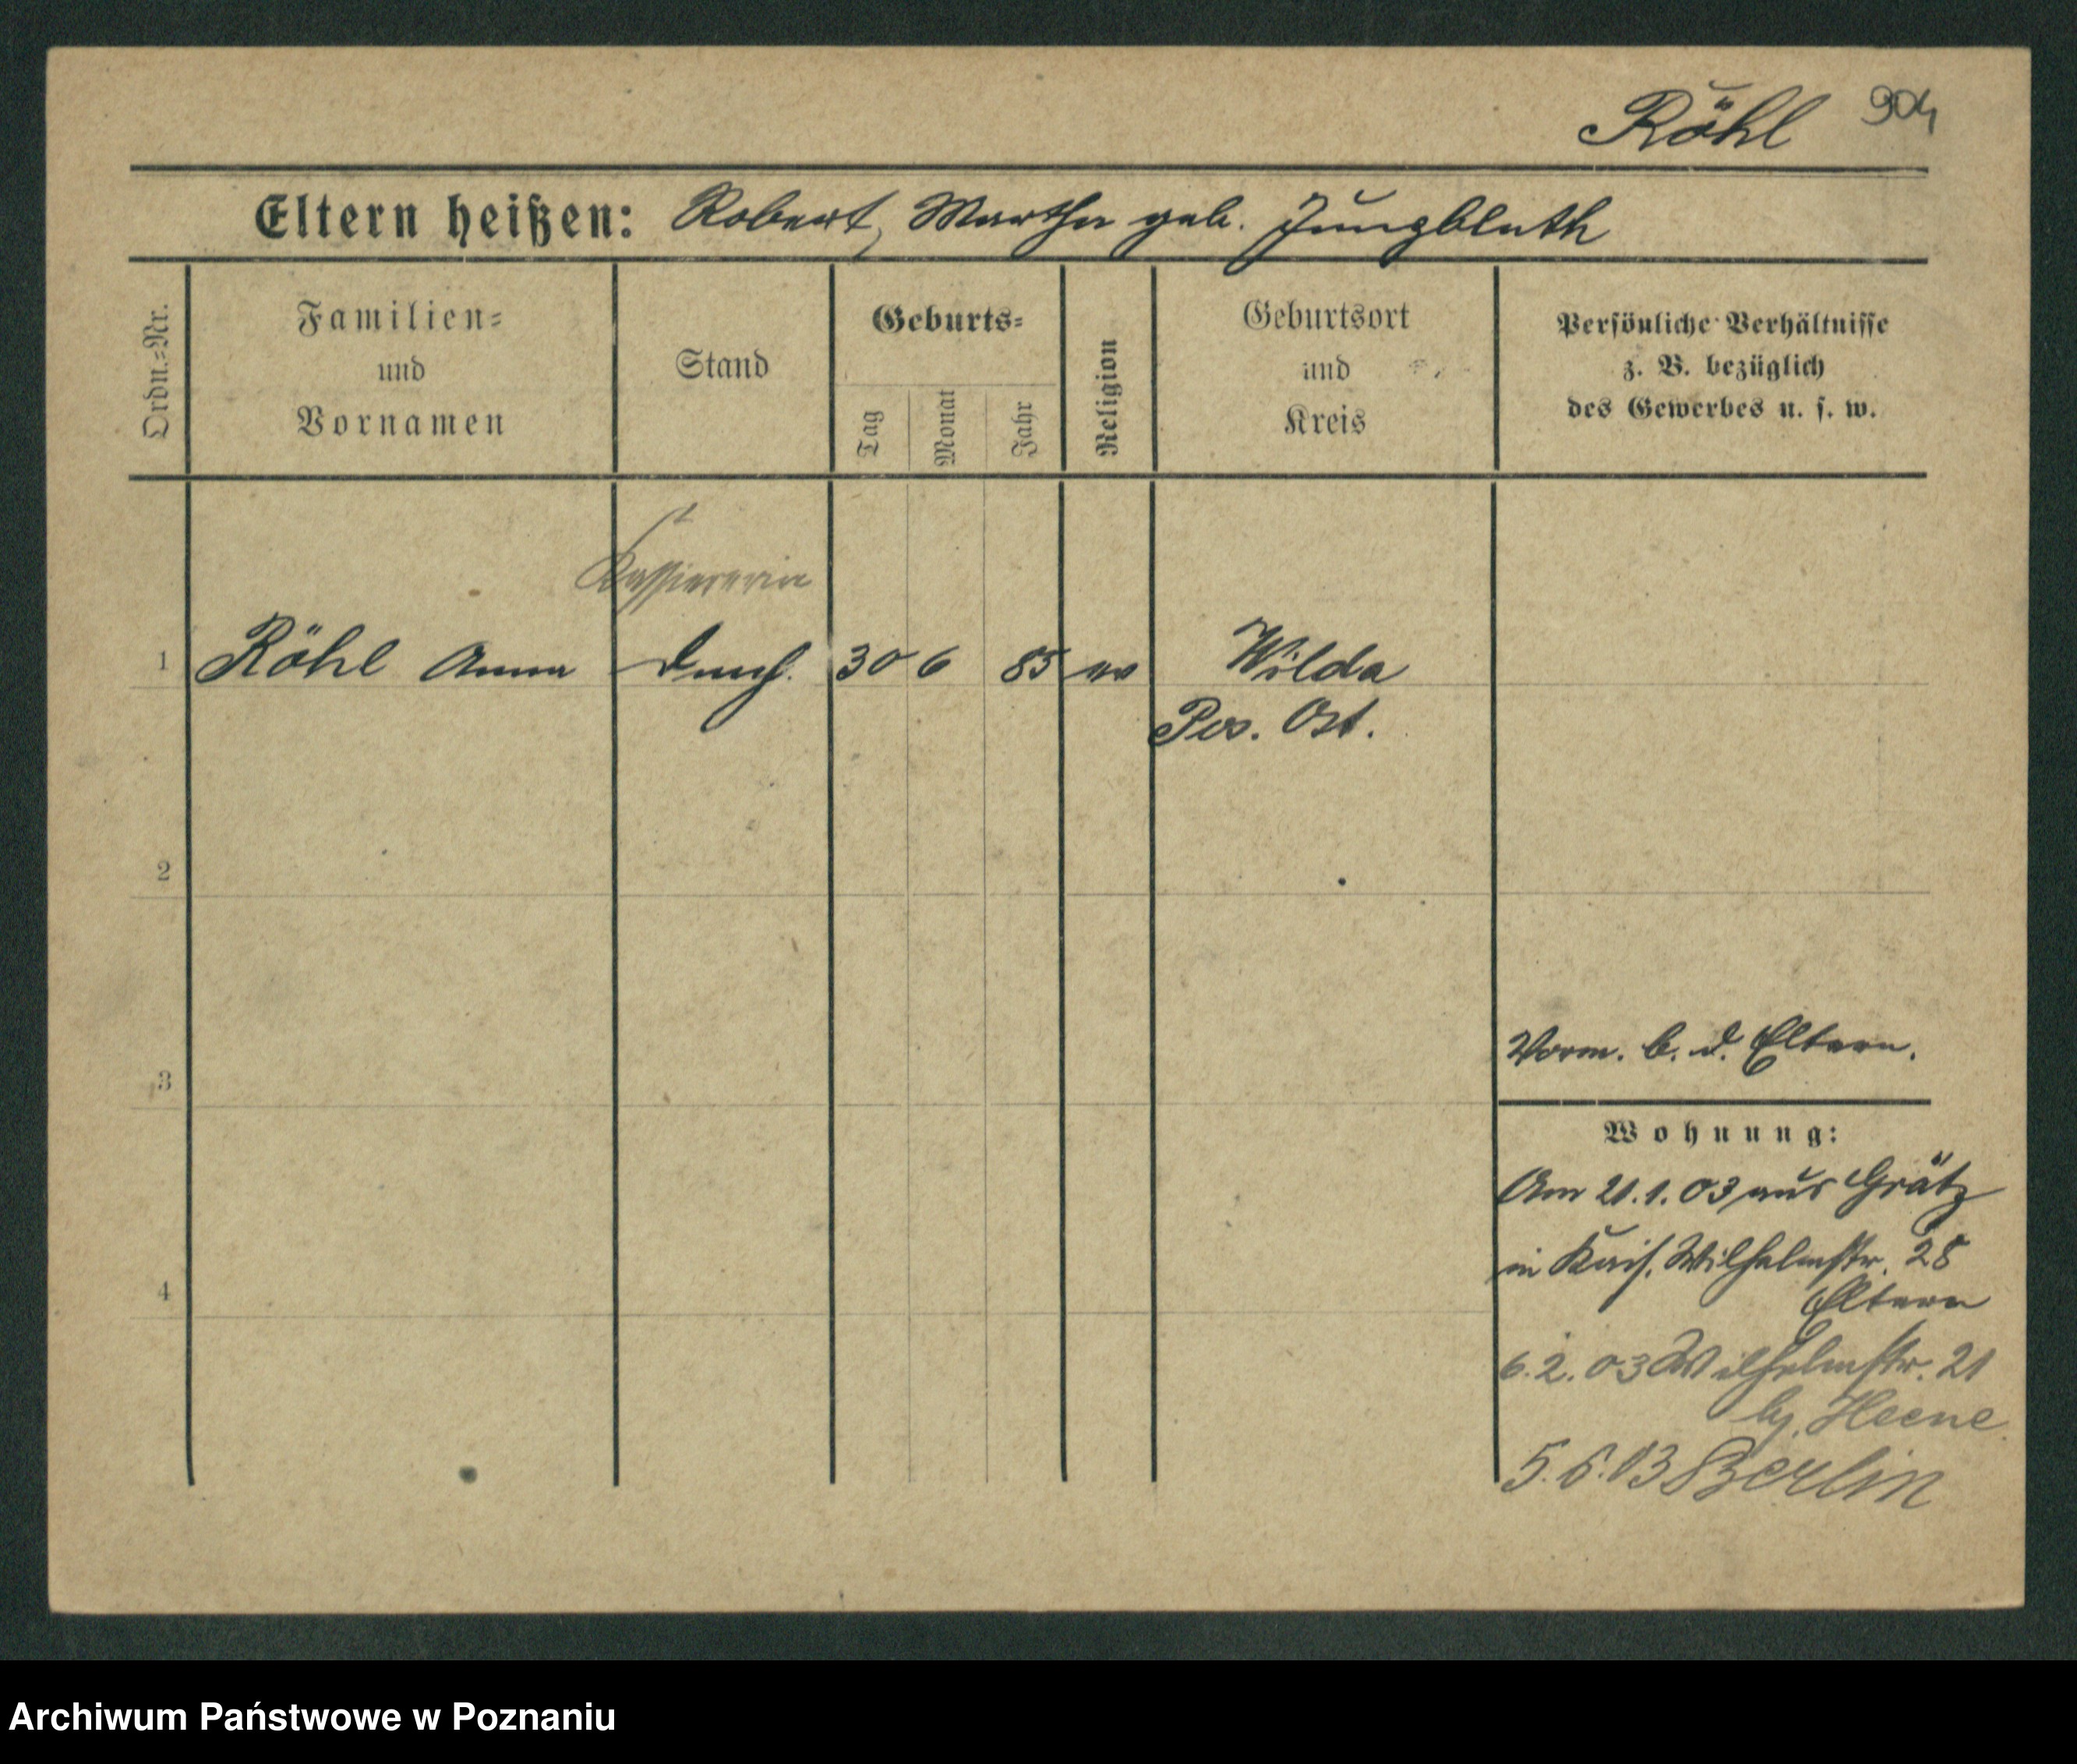 Röhl 904
Eltern heißen: Robert, Martha geb. Jungbluth
Ordn.-Nr.
Familien-
und
Vornamen
Stand
Geburts-
Tag
Monat
Jahr
Religion
Geburtsort
und
Kreis
Persönliche Verhältnisse
z. B. bezüglich
des Gewerbes u. s. w.
Kassiererin
1 Röhl Anna 30 6 85 ev Wilda
Pos. Ost.
2
3
Vorm. b. d. Eltern.
Wohnung:
Am 21.1.03 aus Grätz
in Kais. Wilhelmstr. 28
4
Eltern
6.2.03 Wilhelmstr. 21
by. Heene
5.6.03 Berlin
Archiwum Państwowe w Poznaniu